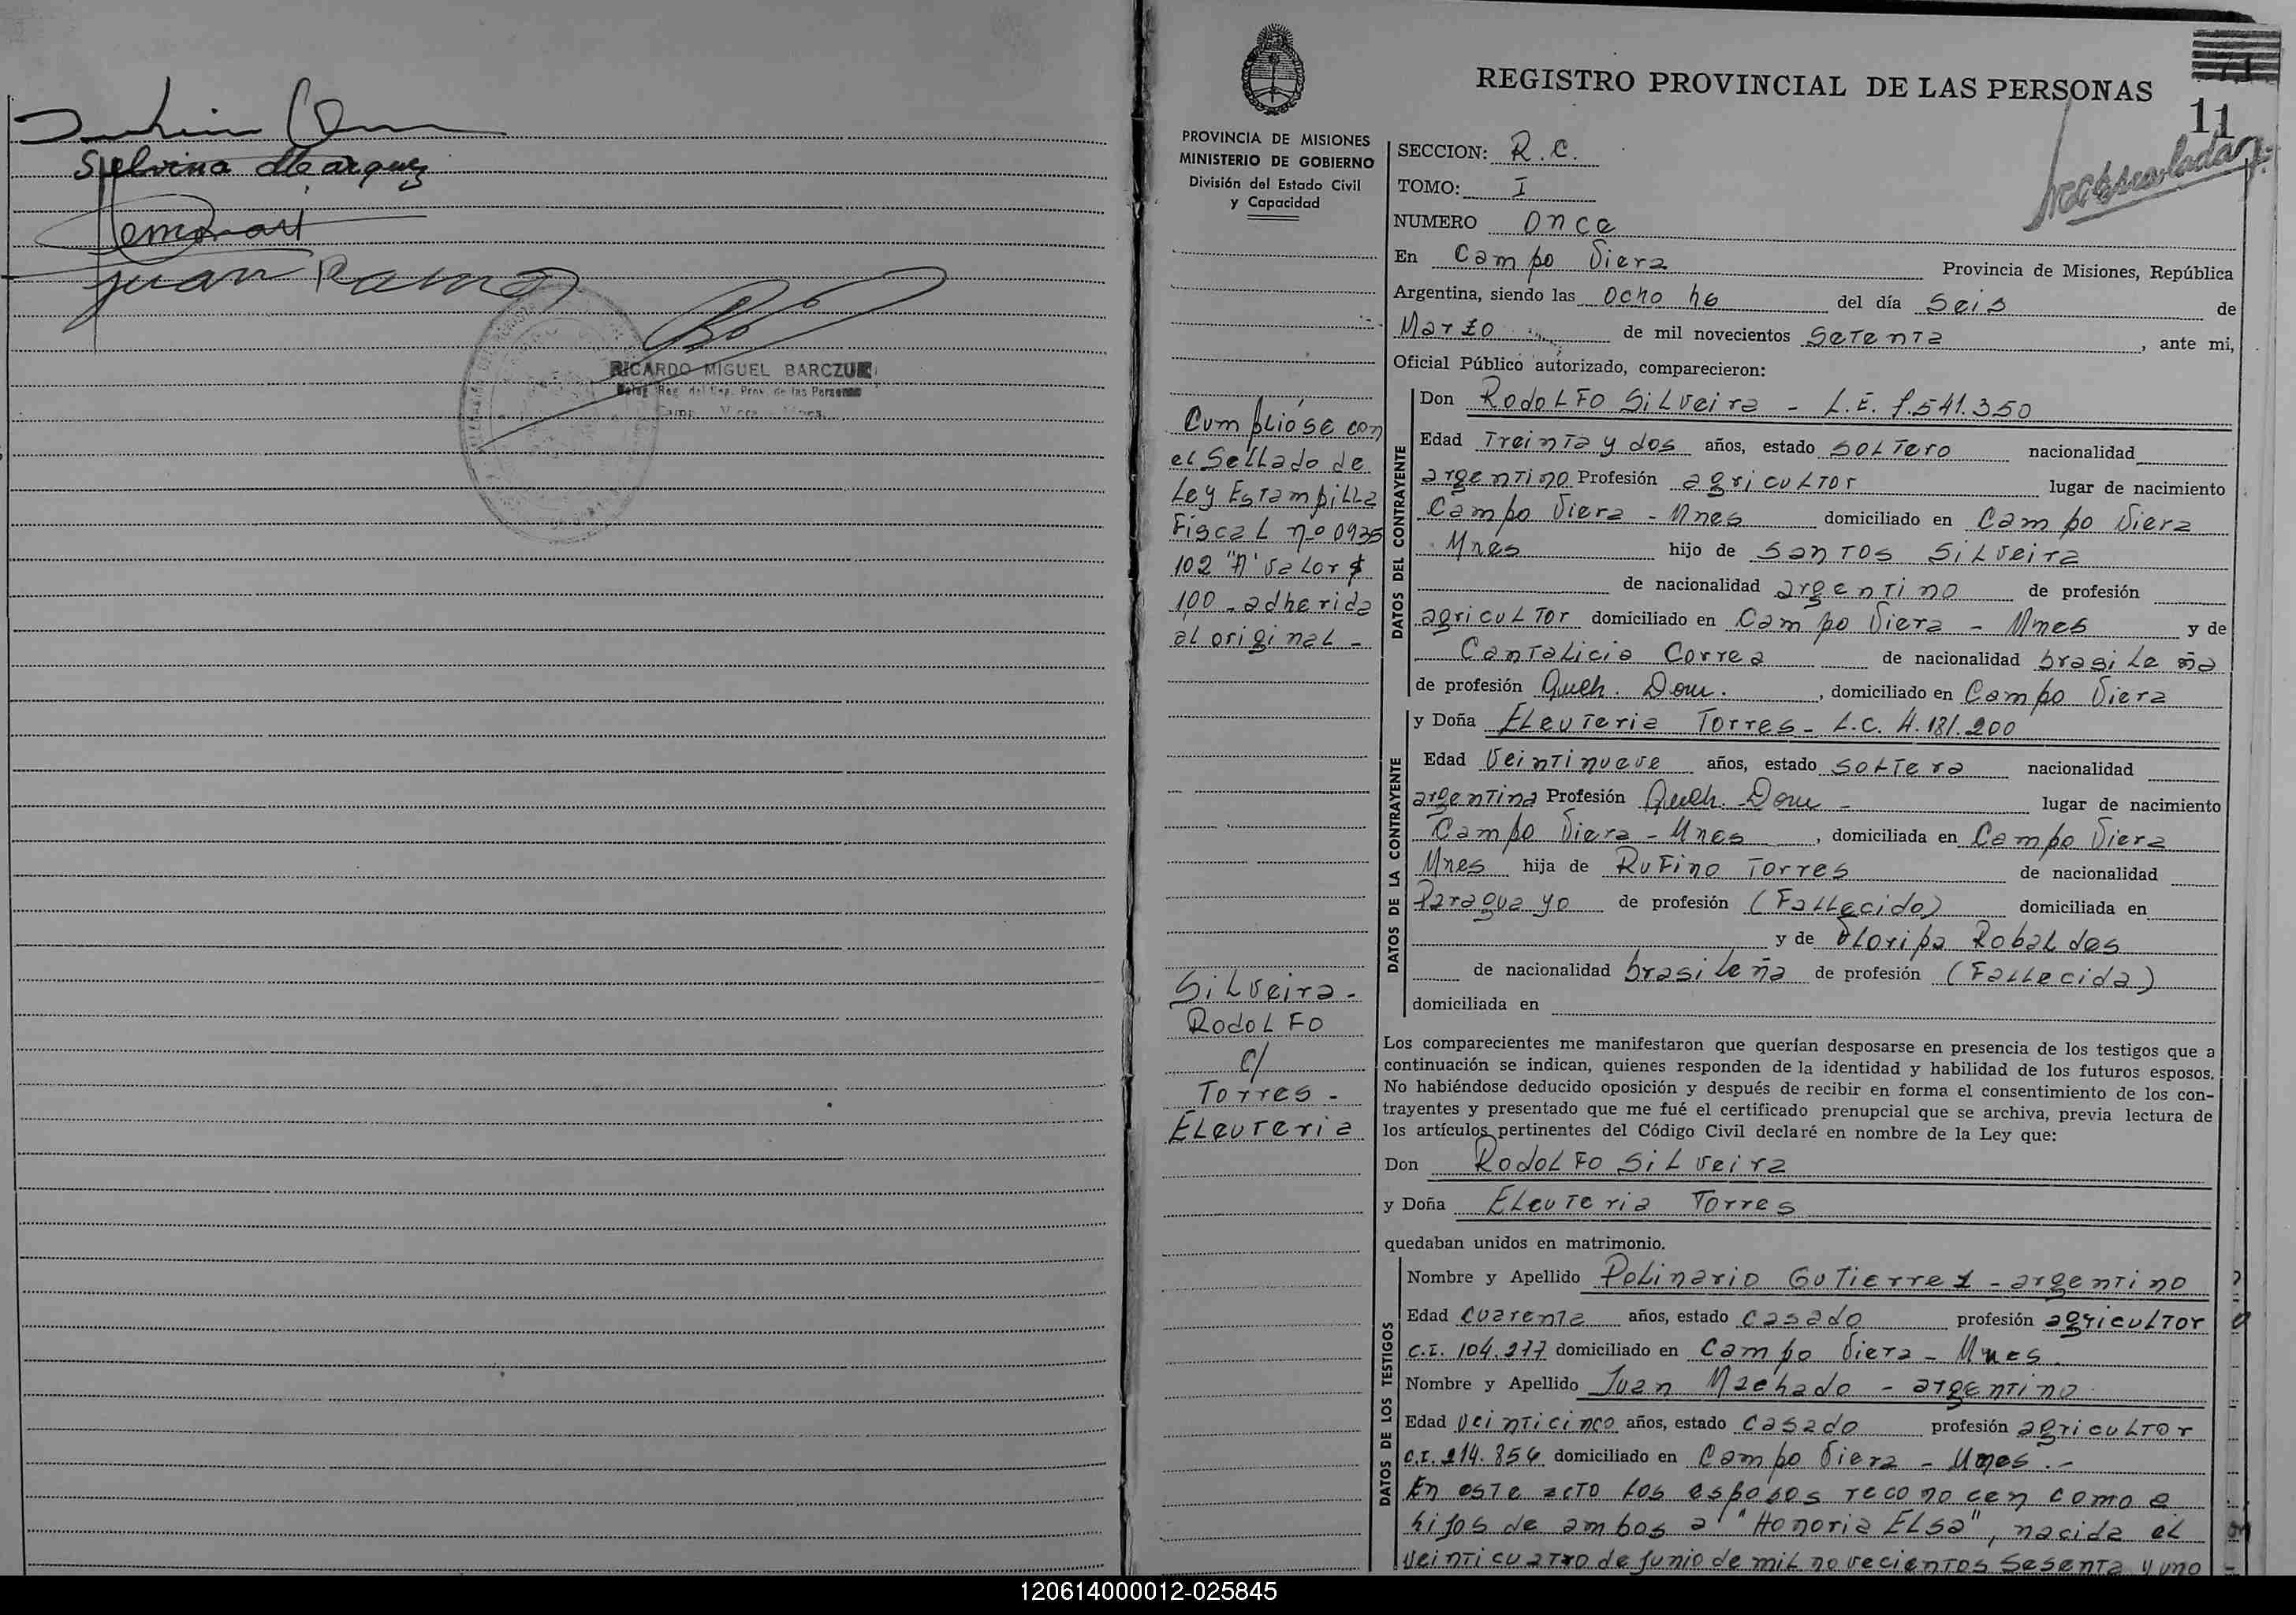 Selvina Marquez
Juan Ramo
RICARDO MIGUEL BARCZUK
Deleg. Reg. del Reg. Prov. de las Personas
REGISTRO PROVINCIAL DE LAS PERSONAS
11
PROVINCIA DE MISIONES
MINISTERIO DE GOBIERNO
División del Estado Civil
y Capacidad
Cumplióse con
el Sellado de
Ley Estampilla
Fiscal nº 0935
102 "A" valor $
1,00 - adherida
al original -
Silveira -
Rodolfo
c/
Torres -
Eleuteria
SECCION: R.C.
TOMO: I
NUMERO Once
En Campo Viera Provincia de Misiones, República
Argentina, siendo las Ocho hs del día Seis de
Marzo de mil novecientos Setenta, ante mi,
Oficial Público autorizado, comparecieron:
DATOS DEL CONTRAYENTE
Don Rodolfo Silveira - L.E. 7.541.350
Edad Treinta y dos años, estado soltero nacionalidad
argentino Profesión agricultor lugar de nacimiento
Campo Viera - Mnes domiciliado en Campo Viera
Mnes hijo de Santos Silveira
de nacionalidad argentino de profesión
agricultor domiciliado en Campo Viera - Mnes y de
Cantalicia Correa de nacionalidad brasileña
de profesión Queh. Dom., domiciliado en Campo Viera
DATOS DE LA CONTRAYENTE
y Doña Eleuteria Torres - L.C. 4.181.200
Edad Veintinueve años, estado soltera nacionalidad
argentina Profesión Queh. Dom - lugar de nacimiento
Campo Viera - Mnes, domiciliada en Campo Viera
Mnes hija de Rufino Torres de nacionalidad
Paraguayo de profesión (Fallecido) domiciliada en
y de Floripa Robaldes
de nacionalidad brasileña de profesión (Fallecida)
domiciliada en
Los comparecientes me manifestaron que querían desposarse en presencia de los testigos que a
continuación se indican, quienes responden de la identidad y habilidad de los futuros esposos.
No habiéndose deducido oposición y después de recibir en forma el consentimiento de los con-
trayentes y presentado que me fué el certificado prenupcial que se archiva, previa lectura de
los artículos pertinentes del Código Civil declaré en nombre de la Ley que:
Don Rodolfo Silveira
y Doña Eleuteria Torres
quedaban unidos en matrimonio.
DATOS DE LOS TESTIGOS
Nombre y Apellido Polinario Gutierrez - argentino
Edad cuarenta años, estado casado profesión agricultor
C.I. 104.277 domiciliado en Campo Viera - Mnes.
Nombre y Apellido Juan Machado - argentino
Edad veinticinco años, estado casado profesión agricultor
C.I. 214.854 domiciliado en Campo Viera - Mnes.-
En este acto los esposos reconocen como
hijos de ambos a "Honoria Elsa", nacida el
veinticuatro de junio de mil novecientos sesenta y uno
120614000012-025845